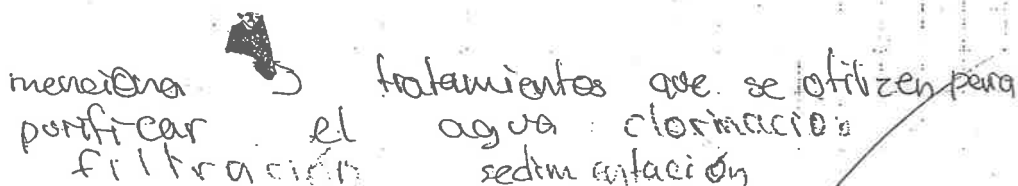 menciona 3 tratamientos que se utilizen para
purificar el agua clorinación
filtración sedimentación